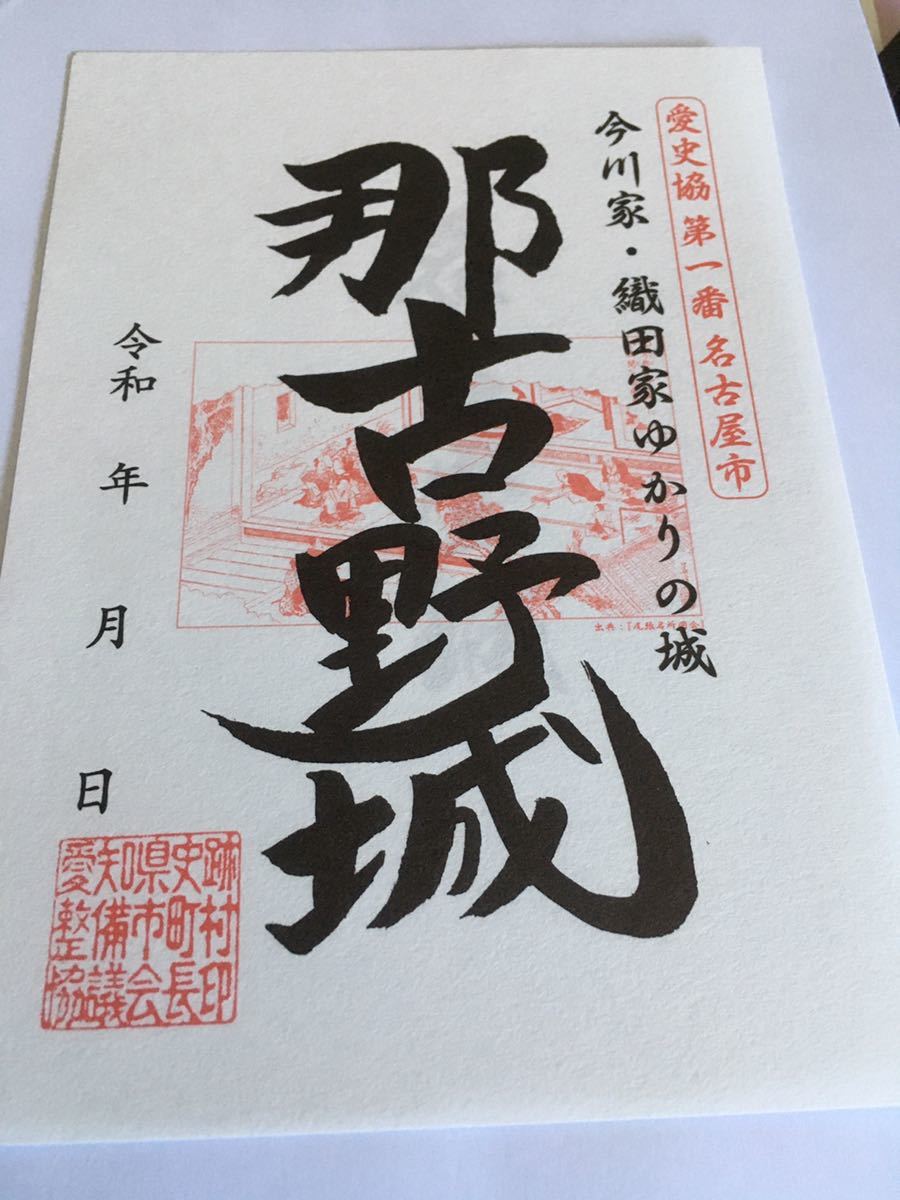 愛史協 第一番 名古屋市
今川家・織田家ゆかりの城
那古野城
出典：『尾張名所図会』
令和 年 月 日
跡村印
史町長
県市会
知備議
愛整協